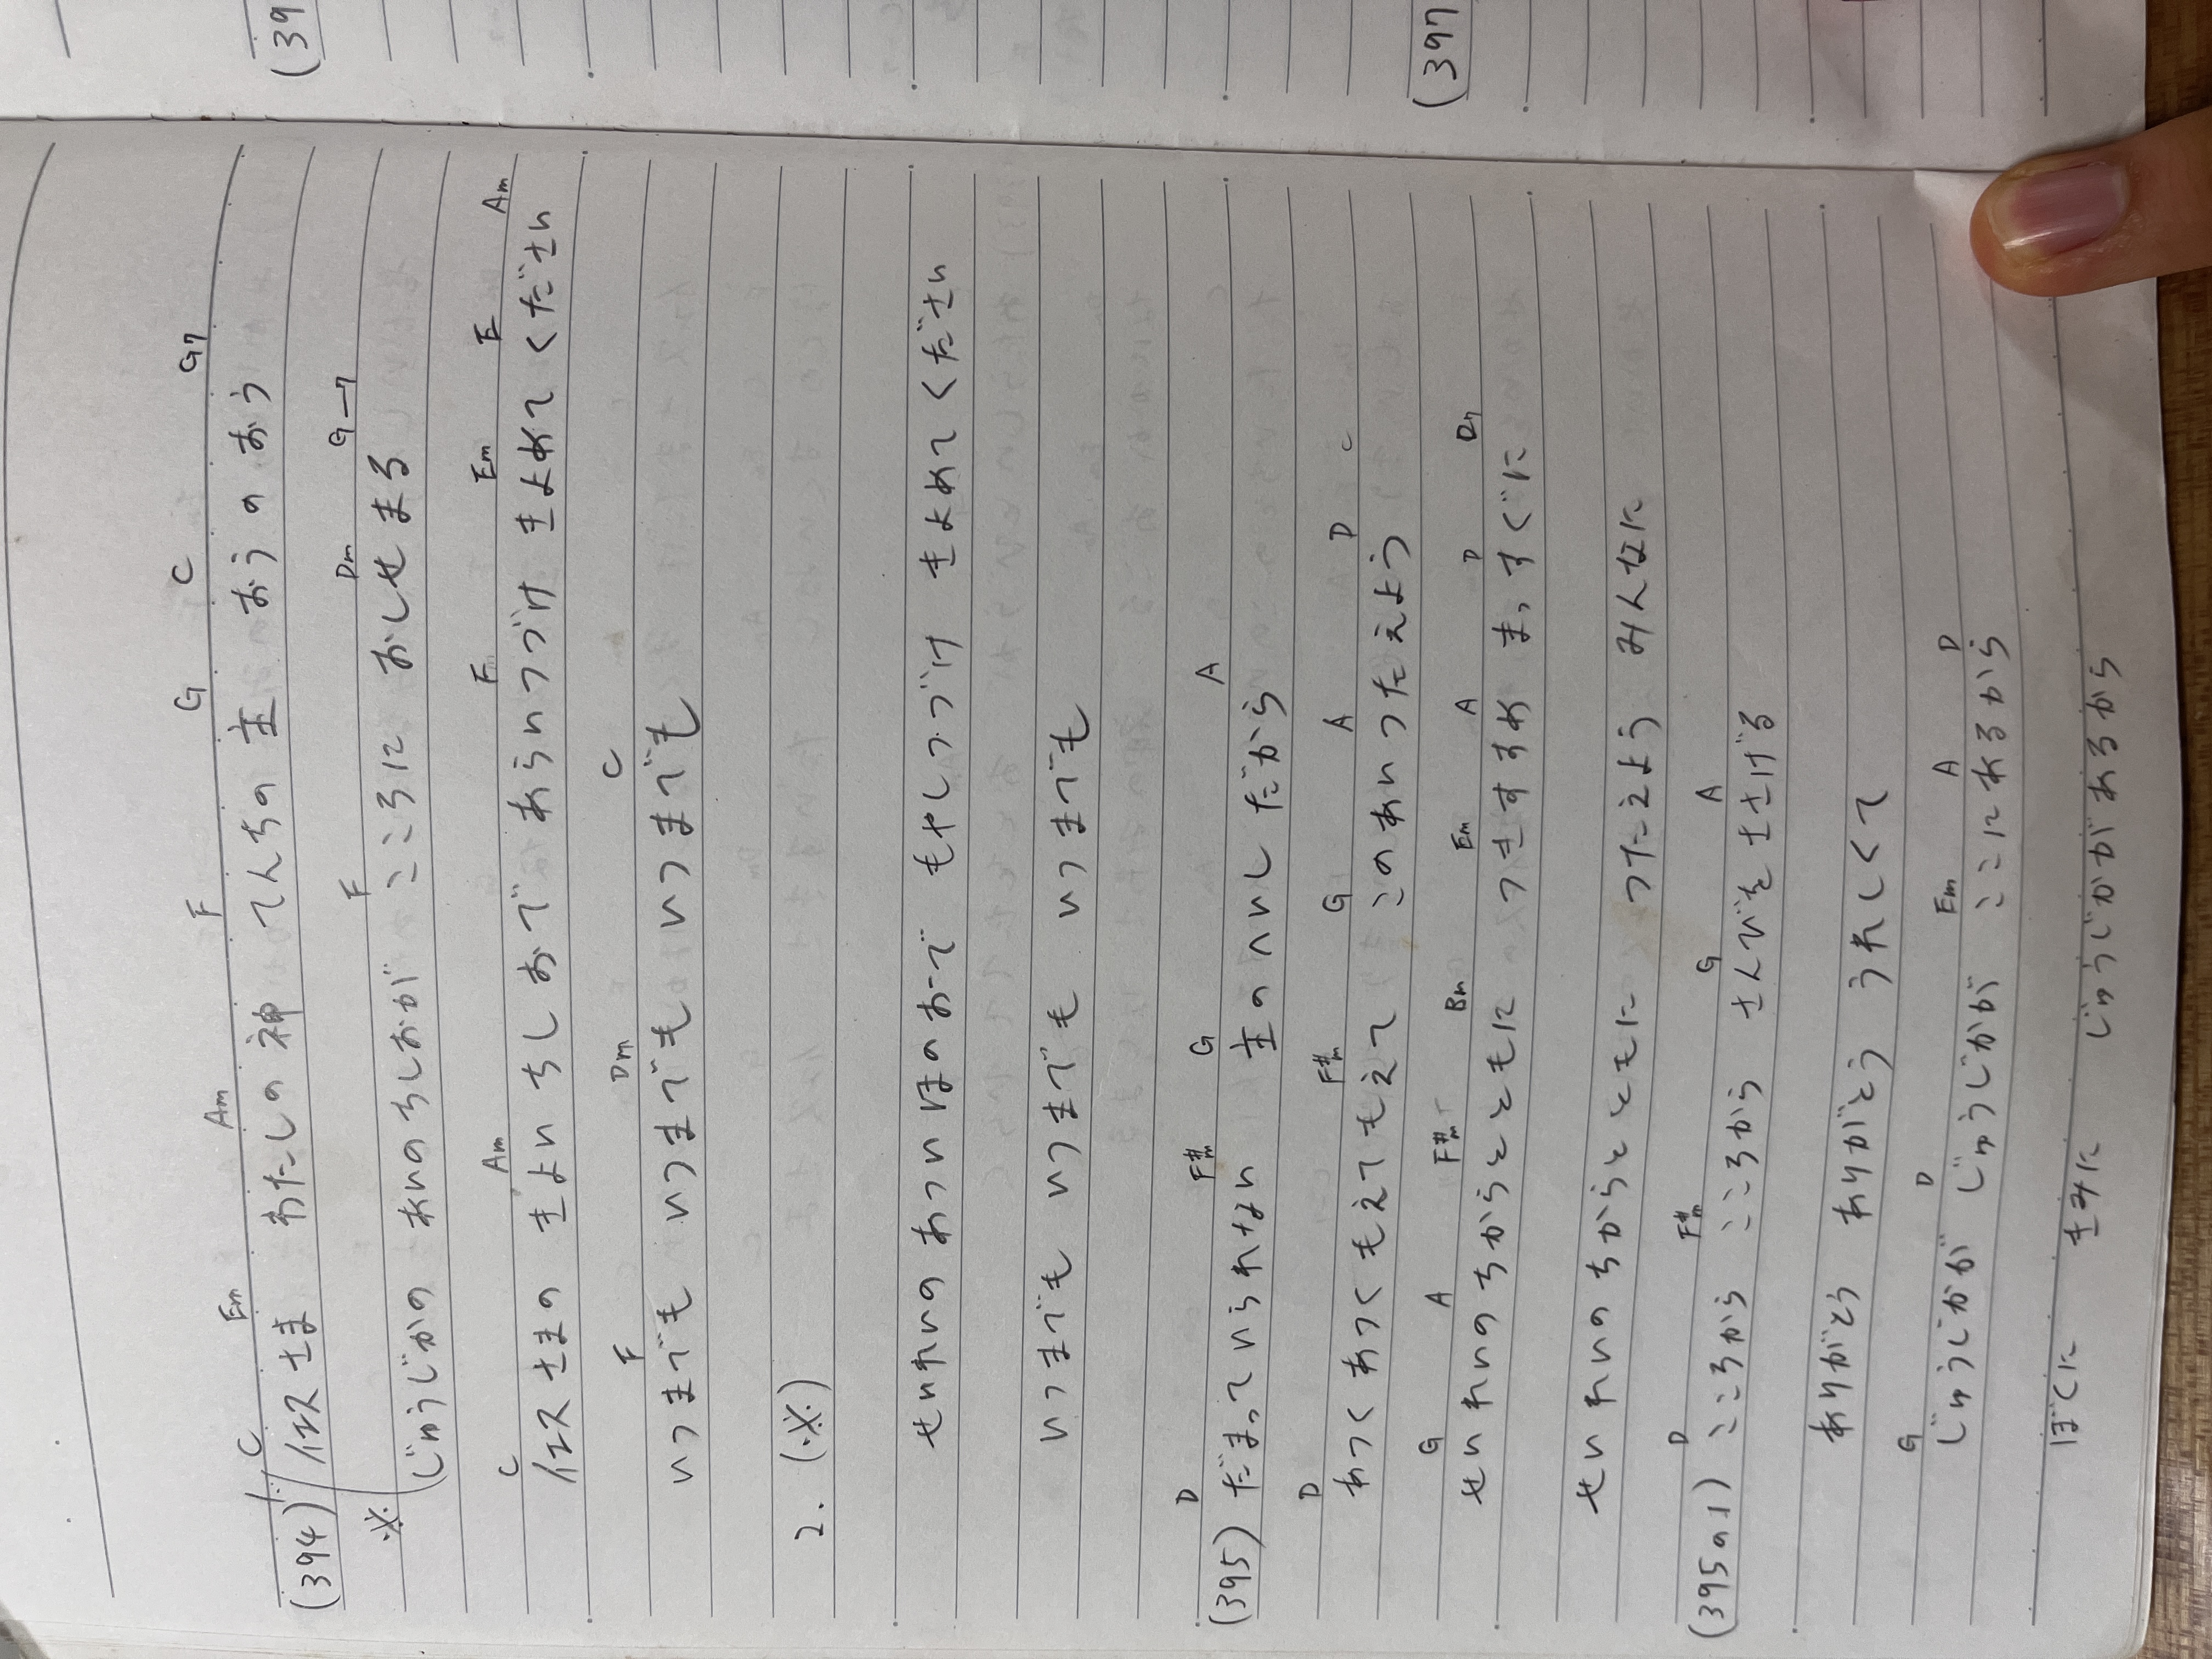 (394) 1.
C Em Am F G C G7
イエスさま わたしの神 てんちの主 おうのおう
F Dm G—7
※ (じゅうじかの あいのちしおが こころに おしせまる
C Am F Em E Am
イエスさまの きよいちしおで あらいつづけ きよめてください
F Dm C
いつまでも いつまでも いつまでも
2. (※)
せいれいの あついほのおーで もやしつづけ きよめてください
いつまでも いつまでも いつまでも
D F#m G A
(395) だまっていられない 主のへいしだから
D F#m G A D C
あつくあつく もえてもえて このあいつたえよう
G A F#m Bm Em A D D7
せいれいのちからとともに つきすすめ まっすぐに
せいれいのちからとともに つたえよう みんなに
D F#m G A
(395の1) こころから こころから さんびをささげる
ありがとう ありがとう うれしくて
G D Em A D
じゅうじかが じゅうじかが ここにあるから
ぼくに きみに じゅうじかがあるから
(39
(397